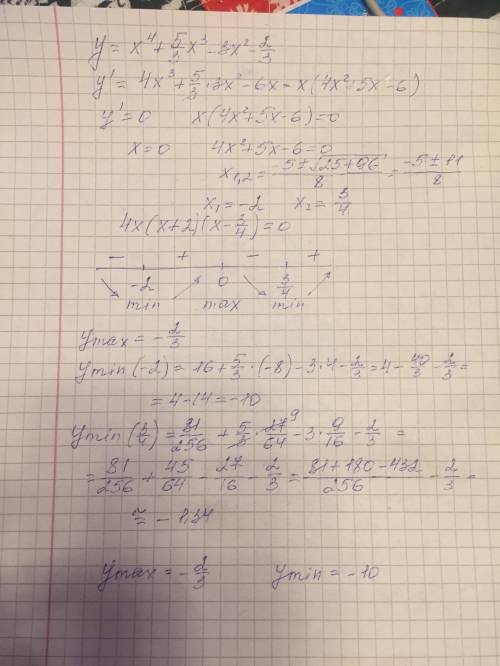 y = x⁴ + 5/3 x³ - 3x² - 2/3
y' = 4x³ + 5/3 · 3x² - 6x = x(4x² + 5x - 6)
y' = 0 x(4x² + 5x - 6) = 0
x = 0 4x² + 5x - 6 = 0
x₁,₂ = (-5 ± √(25 + 96))/8 = (-5 ± 11)/8
x₁ = -2 x₂ = 3/4
4x(x + 2)(x - 3/4) = 0
- + - +
-2 0 3/4
min max min
ymax = -2/3
ymin(-2) = 16 + 5/3 · (-8) - 3·4 - 2/3 = 4 - 40/3 - 2/3 =
= 4 - 14 = -10
ymin(3/4) = 81/256 + 5/3 · 27/64 9 - 3 · 9/16 - 2/3 =
= 81/256 + 45/64 - 27/16 - 2/3 = (81 + 180 - 432)/256 - 2/3 =
≈ -1,34
ymax = -2/3 ymin = -10